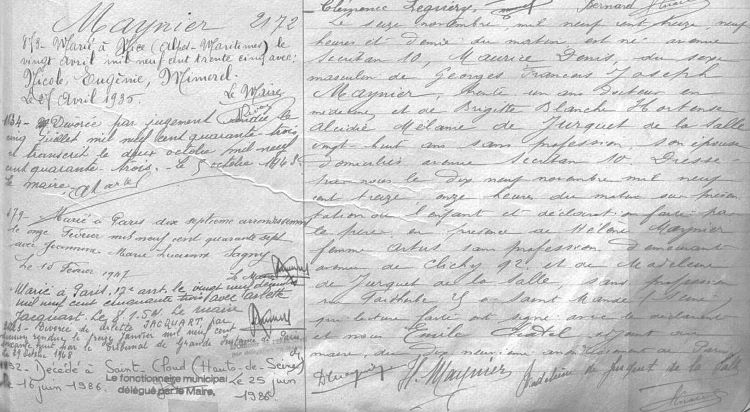 Maynier 2172
Marié à Nice (Alpes-Maritimes) le
vingt Avril mil neuf cent trente cinq avec:
Nicole, Eugénie, Mimard.
Le 27 Avril 1935. Le Maire
Divorcé par jugement rendu le
cinq juillet mil neuf cent quarante trois
et transcrit le deux octobre mil neuf
cent quarante-trois. - le 5 octobre 1943
le maire,
679 - Marié à Paris dix septième arrondissement
le onze Février mil neuf cent quarante sept
avec Jeannine Marie Lucienne
Le 15 Février 1947 Le Maire
Marié à Paris, 17e arrt. le vingt neuf
mil neuf cent cinquante trois avec Arlette
Jacquart. Le 8.1.54 Le maire
Divorcé de Arlette JACQUART, par
jugement rendu le treize janvier mil neuf cent
soixante huit par le Tribunal de Grande Instance de Paris
1968
Décédé à Saint-Cloud (Hauts-de-Seine)
le 16 juin 1986. Le 25 juin
1986
Le fonctionnaire municipal
délégué par le Maire,
Clémence Bernard
Le seize novembre mil neuf cent treize neuf
heures et demie du matin est né avenue
Secrétan 10, Maurice Denis, du sexe
masculin de Georges François Joseph
Maynier, trente un ans Docteur en
médecine et de Brigitte Blanche Hortense
Alcidie Mélanie de Jurquet de la Salle
vingt-huit ans sans profession son épouse
domiciliés avenue Secrétan 10. Dressé
par nous le dix neuf novembre mil neuf
cent treize, onze heures du matin sur présen
tation de l'enfant et déclaration faite par
le père, en présence de Hélène Maynier
femme Artus sans profession, demeurant
avenue de Clichy 92 et de Madeleine
de Jurquet de la Salle sans profession
à Saint Mandé (Seine)
qui lecture faite ont signé avec le déclarant
et nous Emile adjoint au
maire du dix neuvième arrondissement de Paris
H. Maynier Madeleine de Jurquet de la Salle